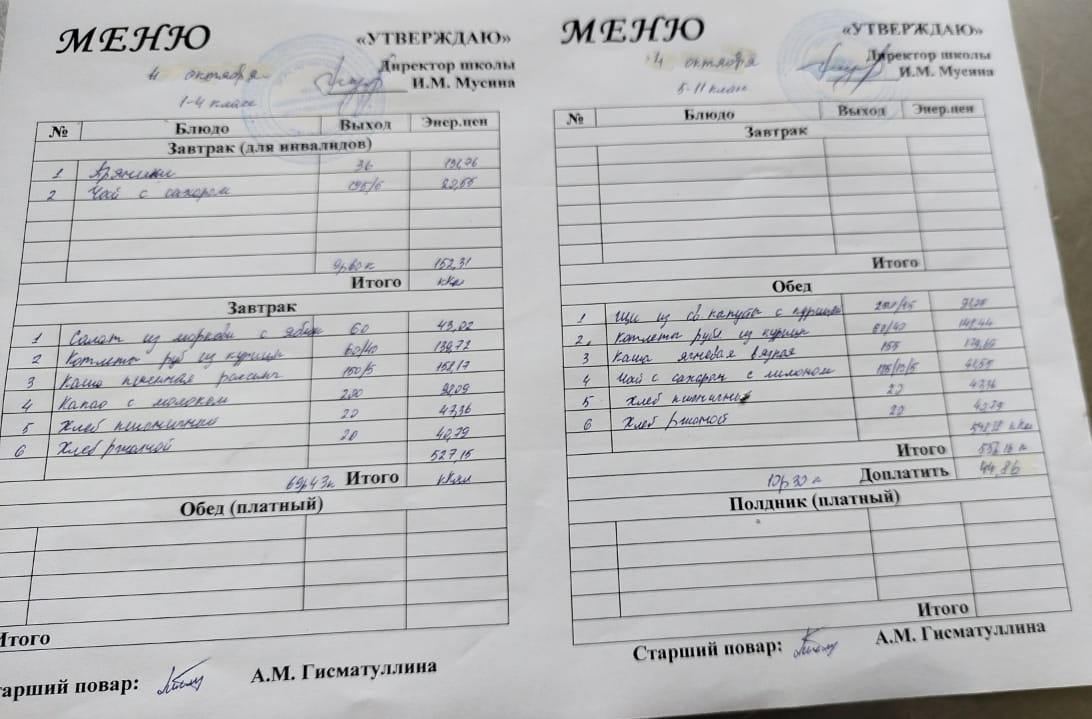 МЕНЮ
«УТВЕРЖДАЮ»
4 октября
Директор школы
И.М. Мусина
1-4 класс
№ Блюдо Выход Энер.цен
Завтрак (для инвалидов)
1 36 131,76
2 Чай с сахаром 195/5 20,55
9р60к 152,31
Итого ккал
Завтрак
1 Салат из моркови с яблок 60 43,02
2 Котлеты руб из курицы 60/40
3 Каша пшенная 150/5
4 Какао с молоком 200
5 Хлеб пшеничный 20 47,36
6 Хлеб ржаной 20 40,79
527,15
69р43к Итого ккал
Обед (платный)
Итого
тарший повар: А.М. Гисматуллина
МЕНЮ
«УТВЕРЖДАЮ»
4 октября
Директор школы
И.М. Мусина
5-11 класс
№ Блюдо Выход Энер.цен
Завтрак
Итого
Обед
1 Щи из св. капусты с курицей
2 Котлеты руб из курицы 60/40
3 Каша ячневая вязкая 155
4 Чай с сахаром с лимоном
5 Хлеб пшеничный 20 47,36
6 Хлеб ржаной 20 40,79
ккал
Итого
Доплатить 44,86
Полдник (платный)
Итого
Старший повар: А.М. Гисматуллина